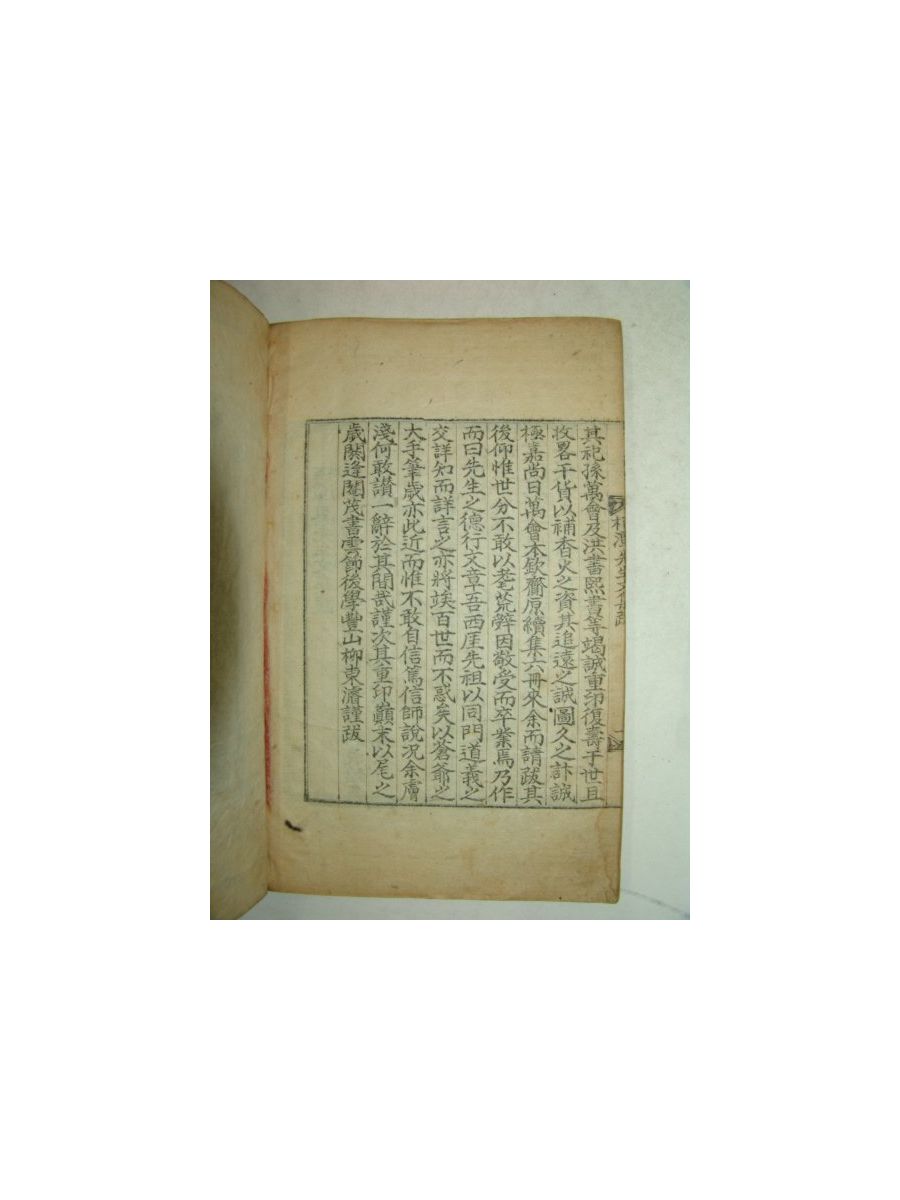 其祀孫萬會及洪書熙書等竭誠重印復壽于世且
收畧干貨以補香火之資其追遠之誠圖久之計誠
極嘉尚日萬會本欽齎原續集六冊來余而請跋其
後仰惟世分不敢以耄荒辭因敬受而卒業焉乃作
而曰先生之德行文章吾西厓先祖以同門道義之
交詳知而詳言之亦將竢百世而不惑矣以蒼爺之
大手筆歲亦此近而惟不敢自信篤信師說况余膚
淺何敢讃一辭於其間哉謹次其重印顚末以尾之
歲閼逢閹茂書雲節後學豐山柳東濬謹跋